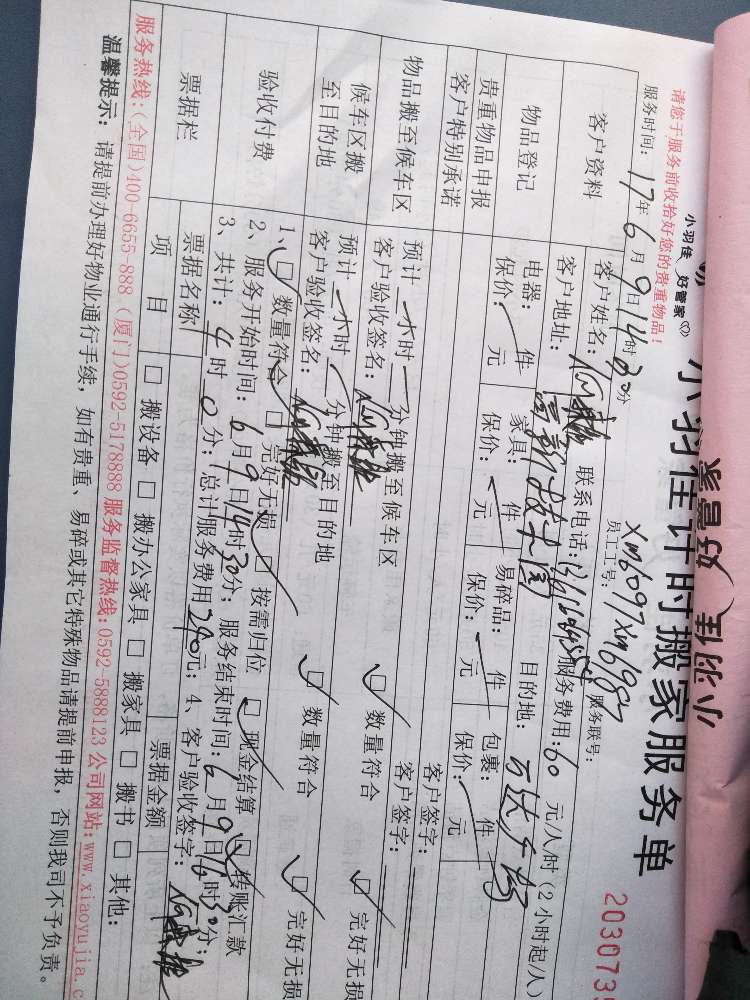 小羽佳 好管家
小羽佳计时搬家服务单
小羽佳 好管家
请您于服务前收拾好您的贵重物品!
员工工号: xm6097 xm6987
服务联号:
服务时间: 17年6月9日14时30分
客户资料
客户姓名:
联系电话:
服务费用: 60 元/人/时 (2小时起/人)
客户地址:
目的地: 万达广场
物品登记
电器: 件
家具: 件
易碎品: 件
包裹: 件
贵重物品申报
保价: 元
保价: 元
保价: 元
保价: 元
客户特别承诺
客户签字:
物品搬至候车区
预计 小时 分钟搬至候车区
数量符合
完好无损
客户验收签名:
客户签字:
候车区搬至目的地
预计 小时 分钟搬至目的地
数量符合
完好无损
客户验收签名:
验收付费
1、数量符合 完好无损 按需归位 现金结算 转账汇款
2、服务开始时间: 6月9日14时30分; 服务结束时间: 6月9日16时30分;
3、共计: 4时0分; 总计服务费用240元; 4、客户验收签字:
票据栏
票据名称
票据金额
项 目
搬设备 搬办公家具 搬家具 搬书 其他:
服务热线:(全国)400-6655-888 (厦门)0592-5178888 服务监督热线:0592-5888123 公司网站:www.xiaoyujia.c
温馨提示: 请提前办理好物业通行手续, 如有贵重、易碎或其它特殊物品请提前申报, 否则我司不予负责。